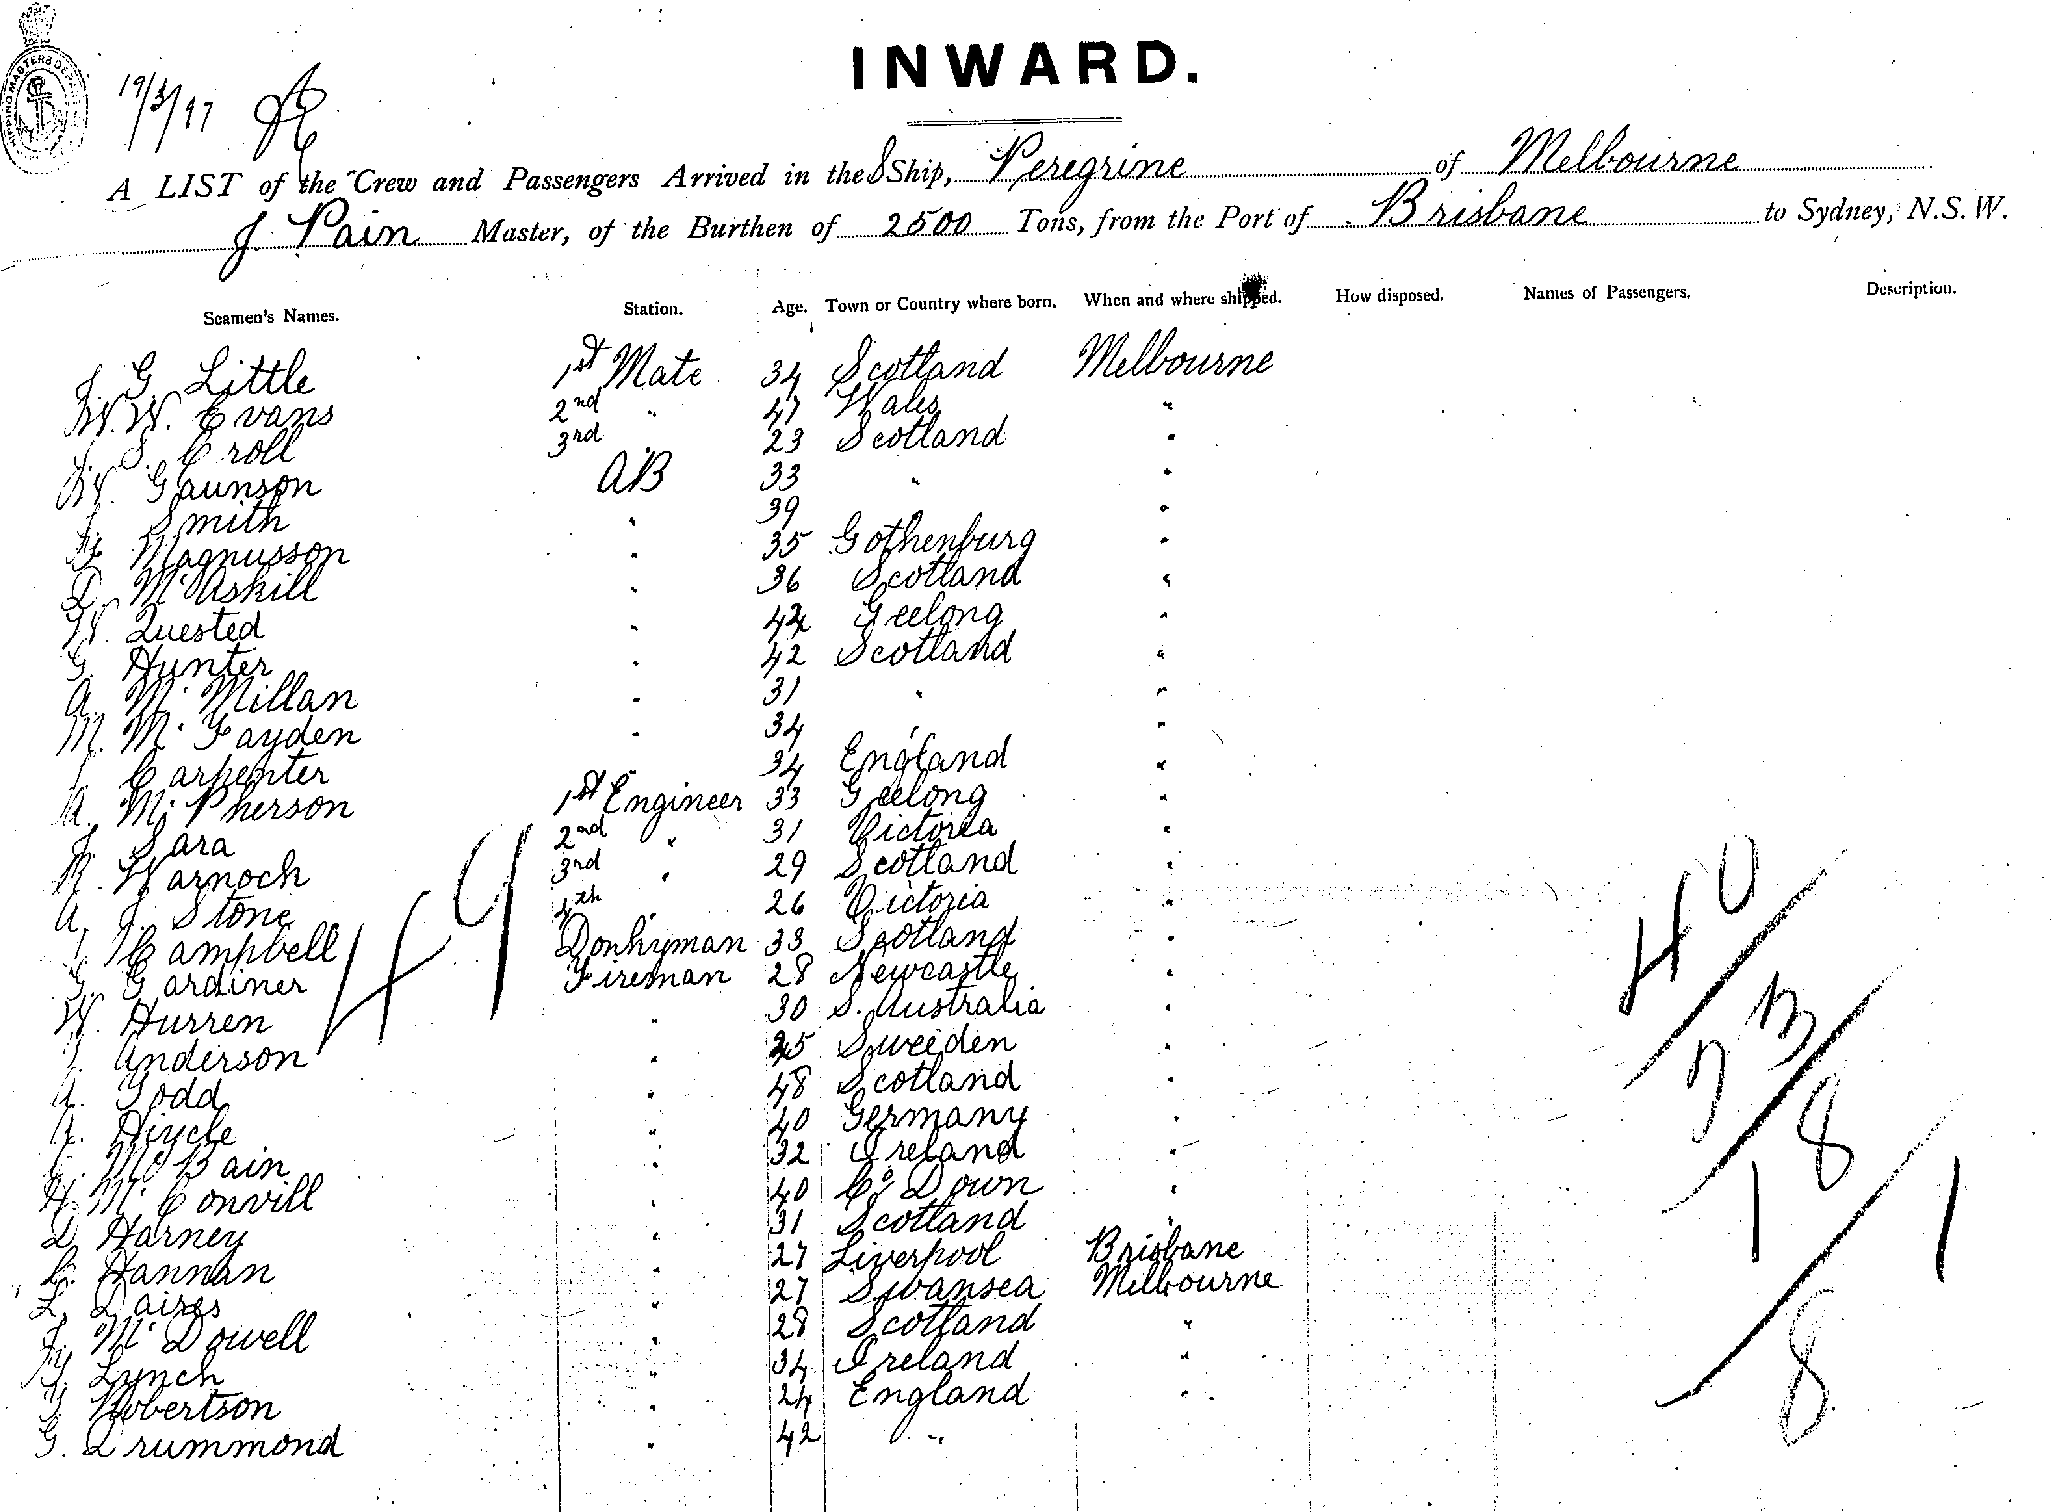 INWARD.
19/3/97
A LIST of the Crew and Passengers Arrived in the SShip, Peregrine of Melbourne
J. Pain Master, of the Burthen of 2500 Tons, from the Port of Brisbane to Sydney, N.S.W.
Seamen's Names. Station. Age. Town or Country where born. When and where shipped. How disposed. Names of Passengers. Description.
J. G. Little 1st Mate 34 Scotland Melbourne
W. W. Evans 2nd " 47 Wales "
J. S. Croll 3rd 23 Scotland "
W. Gaunson AB 33 " "
J. Smith " 39 "
Magnusson " 35 Gothenburg "
D. McAskill " 36 Scotland "
W. Quested " 44 Geelong "
G. Hunter " 42 Scotland "
A. McMillan " 31 " "
M. McFayden " 34 " "
Carpenter 34 England "
A. McPherson 1st Engineer 33 Geelong "
J. Sara 2nd " 31 Victoria "
R. Warnoch 3rd " 29 Scotland "
A. J. Stone 4th " 26 Victoria "
Campbell Donkyman 33 Scotland "
G. Gardiner Fireman 28 Newcastle "
W. Hurren " 30 S. Australia "
Anderson " 45 Sweeden "
A. Todd " 48 Scotland "
A. " 40 Germany "
McBain " 32 Ireland "
H. McConvill " 40 Co Down "
D. Harney " 31 Scotland "
C. Hannan " 27 Liverpool Brisbane
L. " 27 Swansea Melbourne
J. McDowell " 28 Scotland "
Lynch " 34 Ireland "
Robertson " 24 England "
G. Drummond " 42 "
49
40
73
18
81